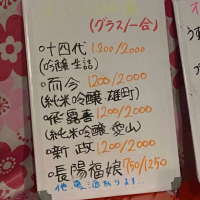 (グラス/一合)
○十四代 1200/2000
(吟醸生詰)
○而今 1200/2000
(純米吟醸雄町)
○飛露喜 1200/2000
(純米吟醸愛山)
○新政 1200/2000
○長陽福娘 750/1250
他、裏酒あります…